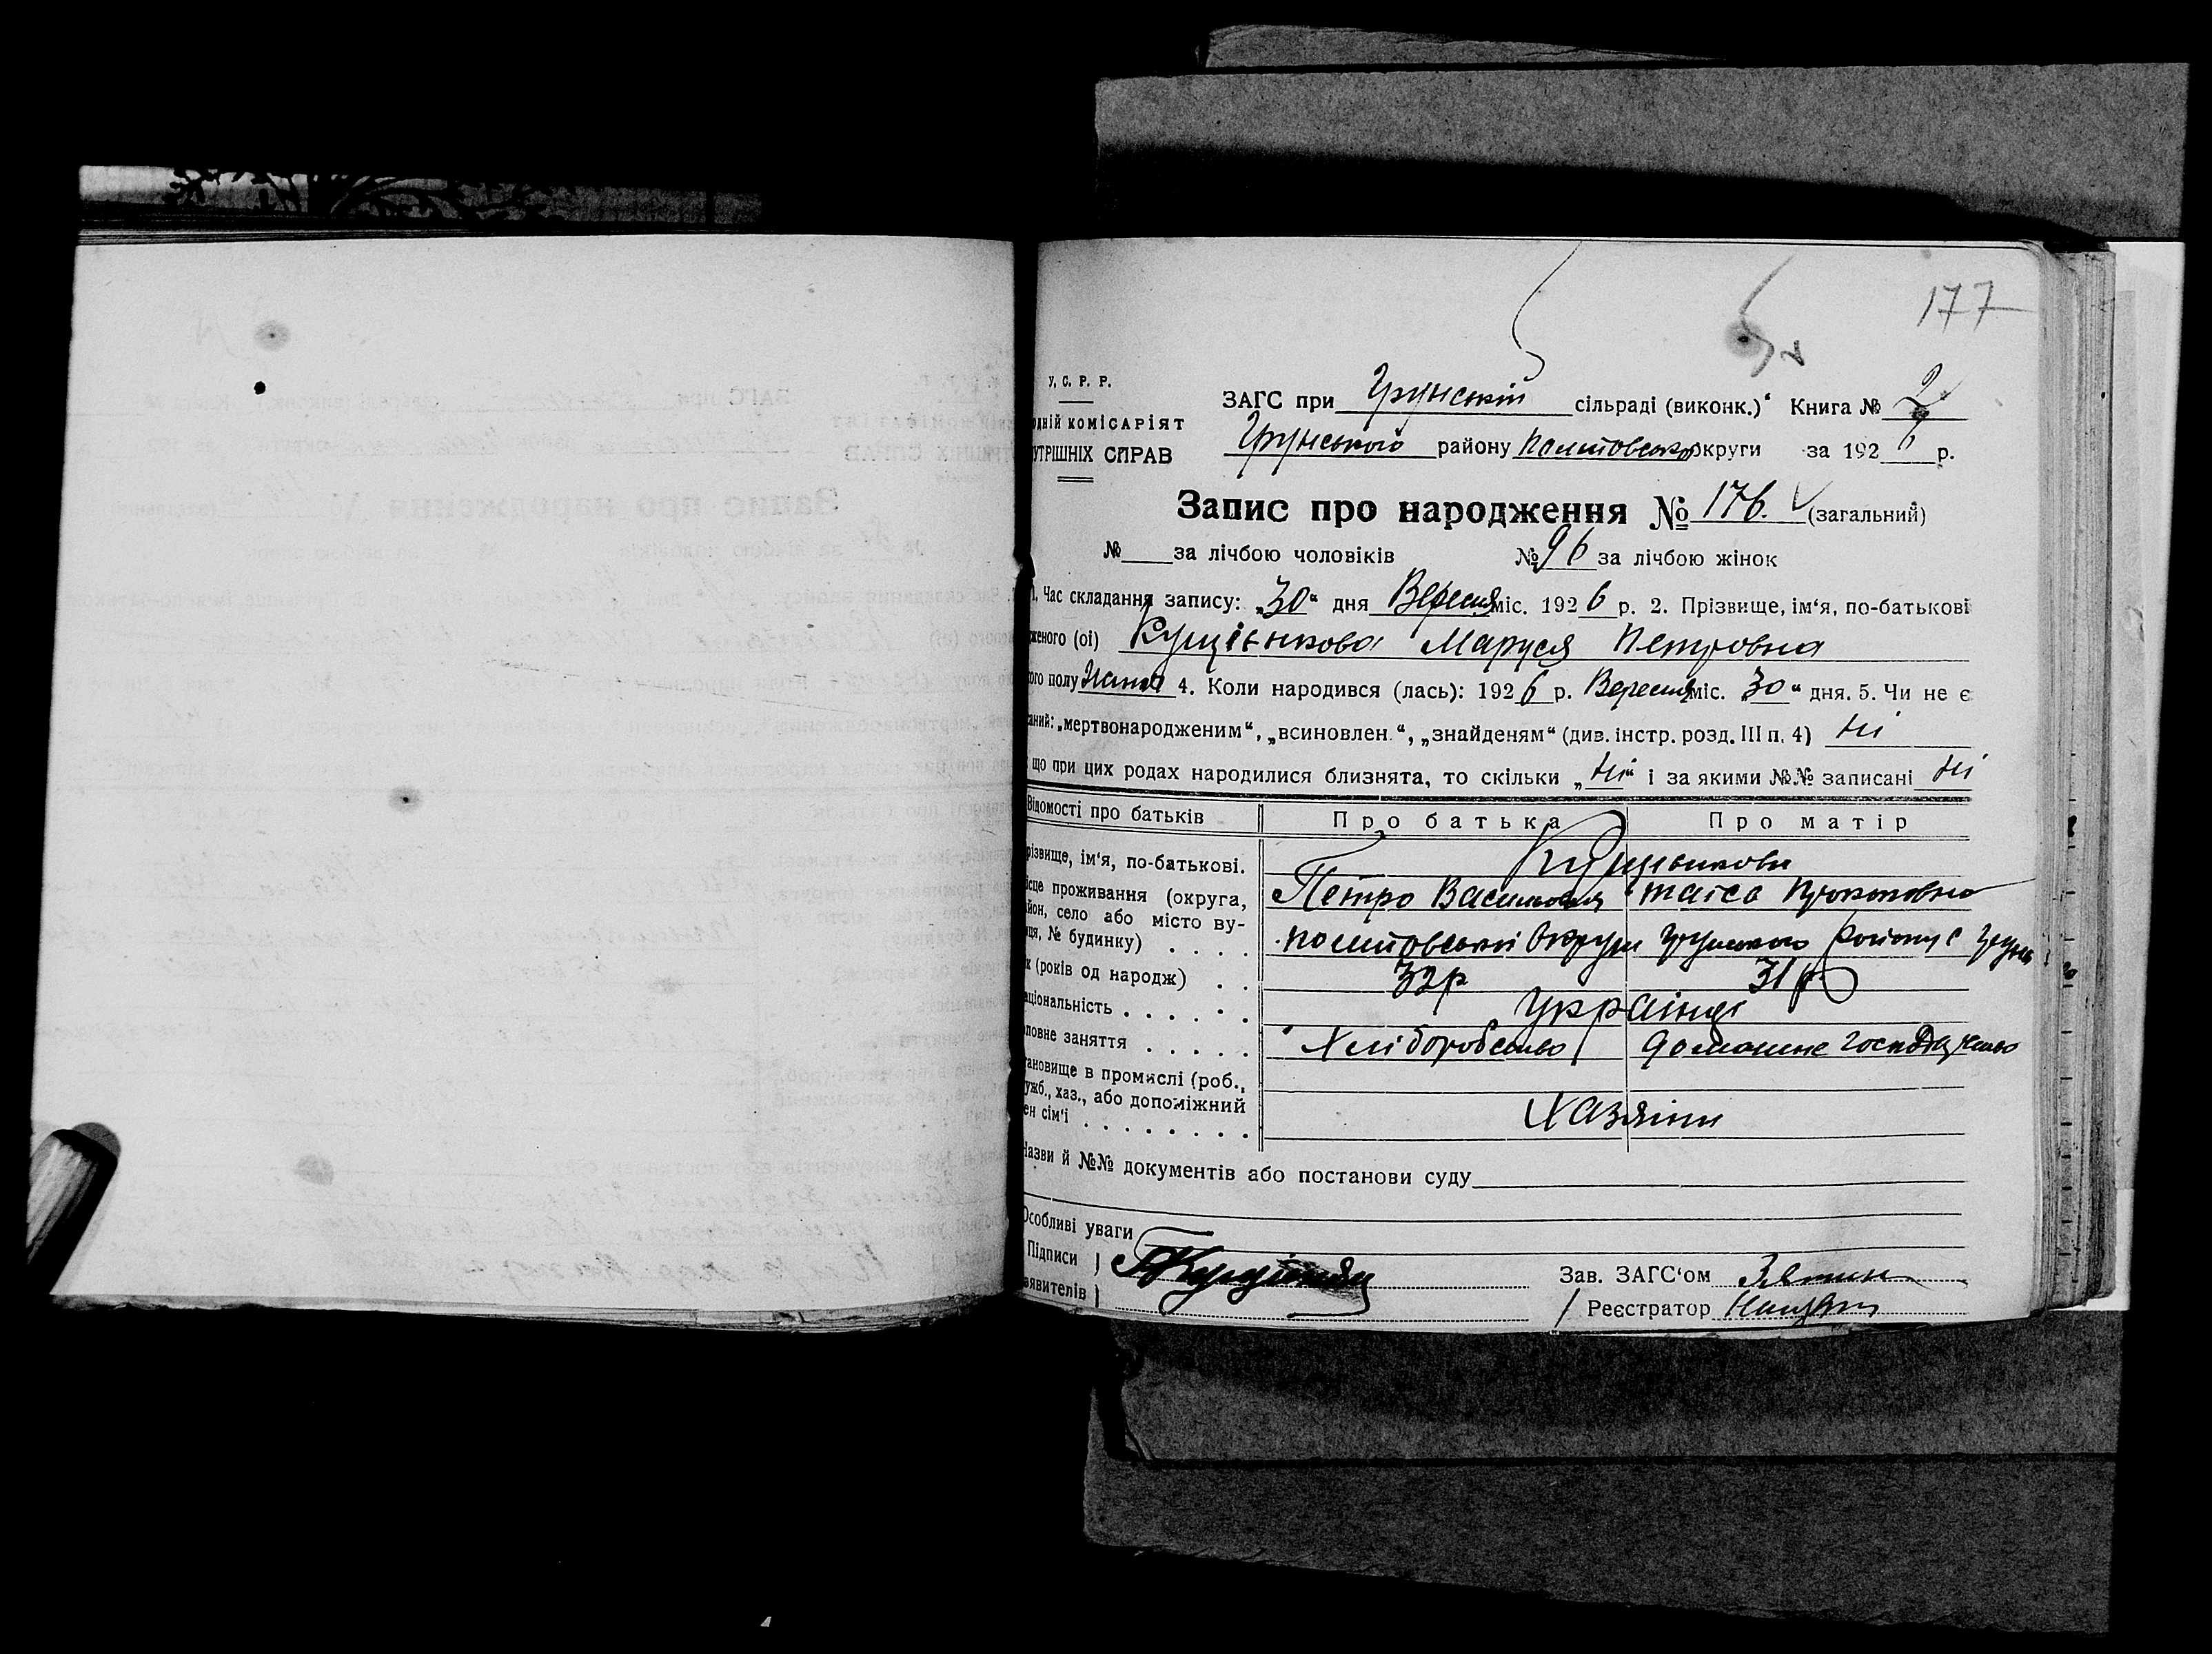 177
У. С. Р. Р.
ЗАГС при Грунській сільраді (виконк.) Книга № 2
одній комісаріят
Грунського району Полтовської округи за 1926 р.
утрішніх справ
Запис про народження № 176. (загальний)
№ за лічбою чоловіків № 96 за лічбою жінок
1. Час складання запису: „30“ дня Вересня міс. 1926 р. 2. Прізвище, ім‘я, по-батькові
женого (ої) Куцінкова Маруся Петровна
ого полу 4. Коли народився (лась): 1926 р. Вересня міс. 30“ дня. 5. Чи не є
аний: „мертвонародженим“, „всиновлен.“, „знайденям“ (див. інстр. розд. III п. 4) Ні
що при цих родах народилися близнята, то скільки „Ні“ і за якими №№ записані Ні
Відомості про батьків Про батька Про матір
різвище, ім‘я, по-батькові.
Петро Васильович Таїса Прокоповна
ісце проживання (округа,
йон, село або місто ву-
иця, № будинку) . . . . Полтовської Округи Грунського Району с Грунь
к (років од народж) . . 32р 31р
аціональність . . . . . . Українці
ловне заняття . . . . . Хліборобство домашнє господарство
ановище в промислі (роб.,
ужб., хаз., або допоміжний
ен сім‘ї . . . . . . . . Хазяїни
Назви й №№ документів або постанови суду
Особливі уваги
Підписи
аявителів
Зав. ЗАГС‘ом
Реєстратор